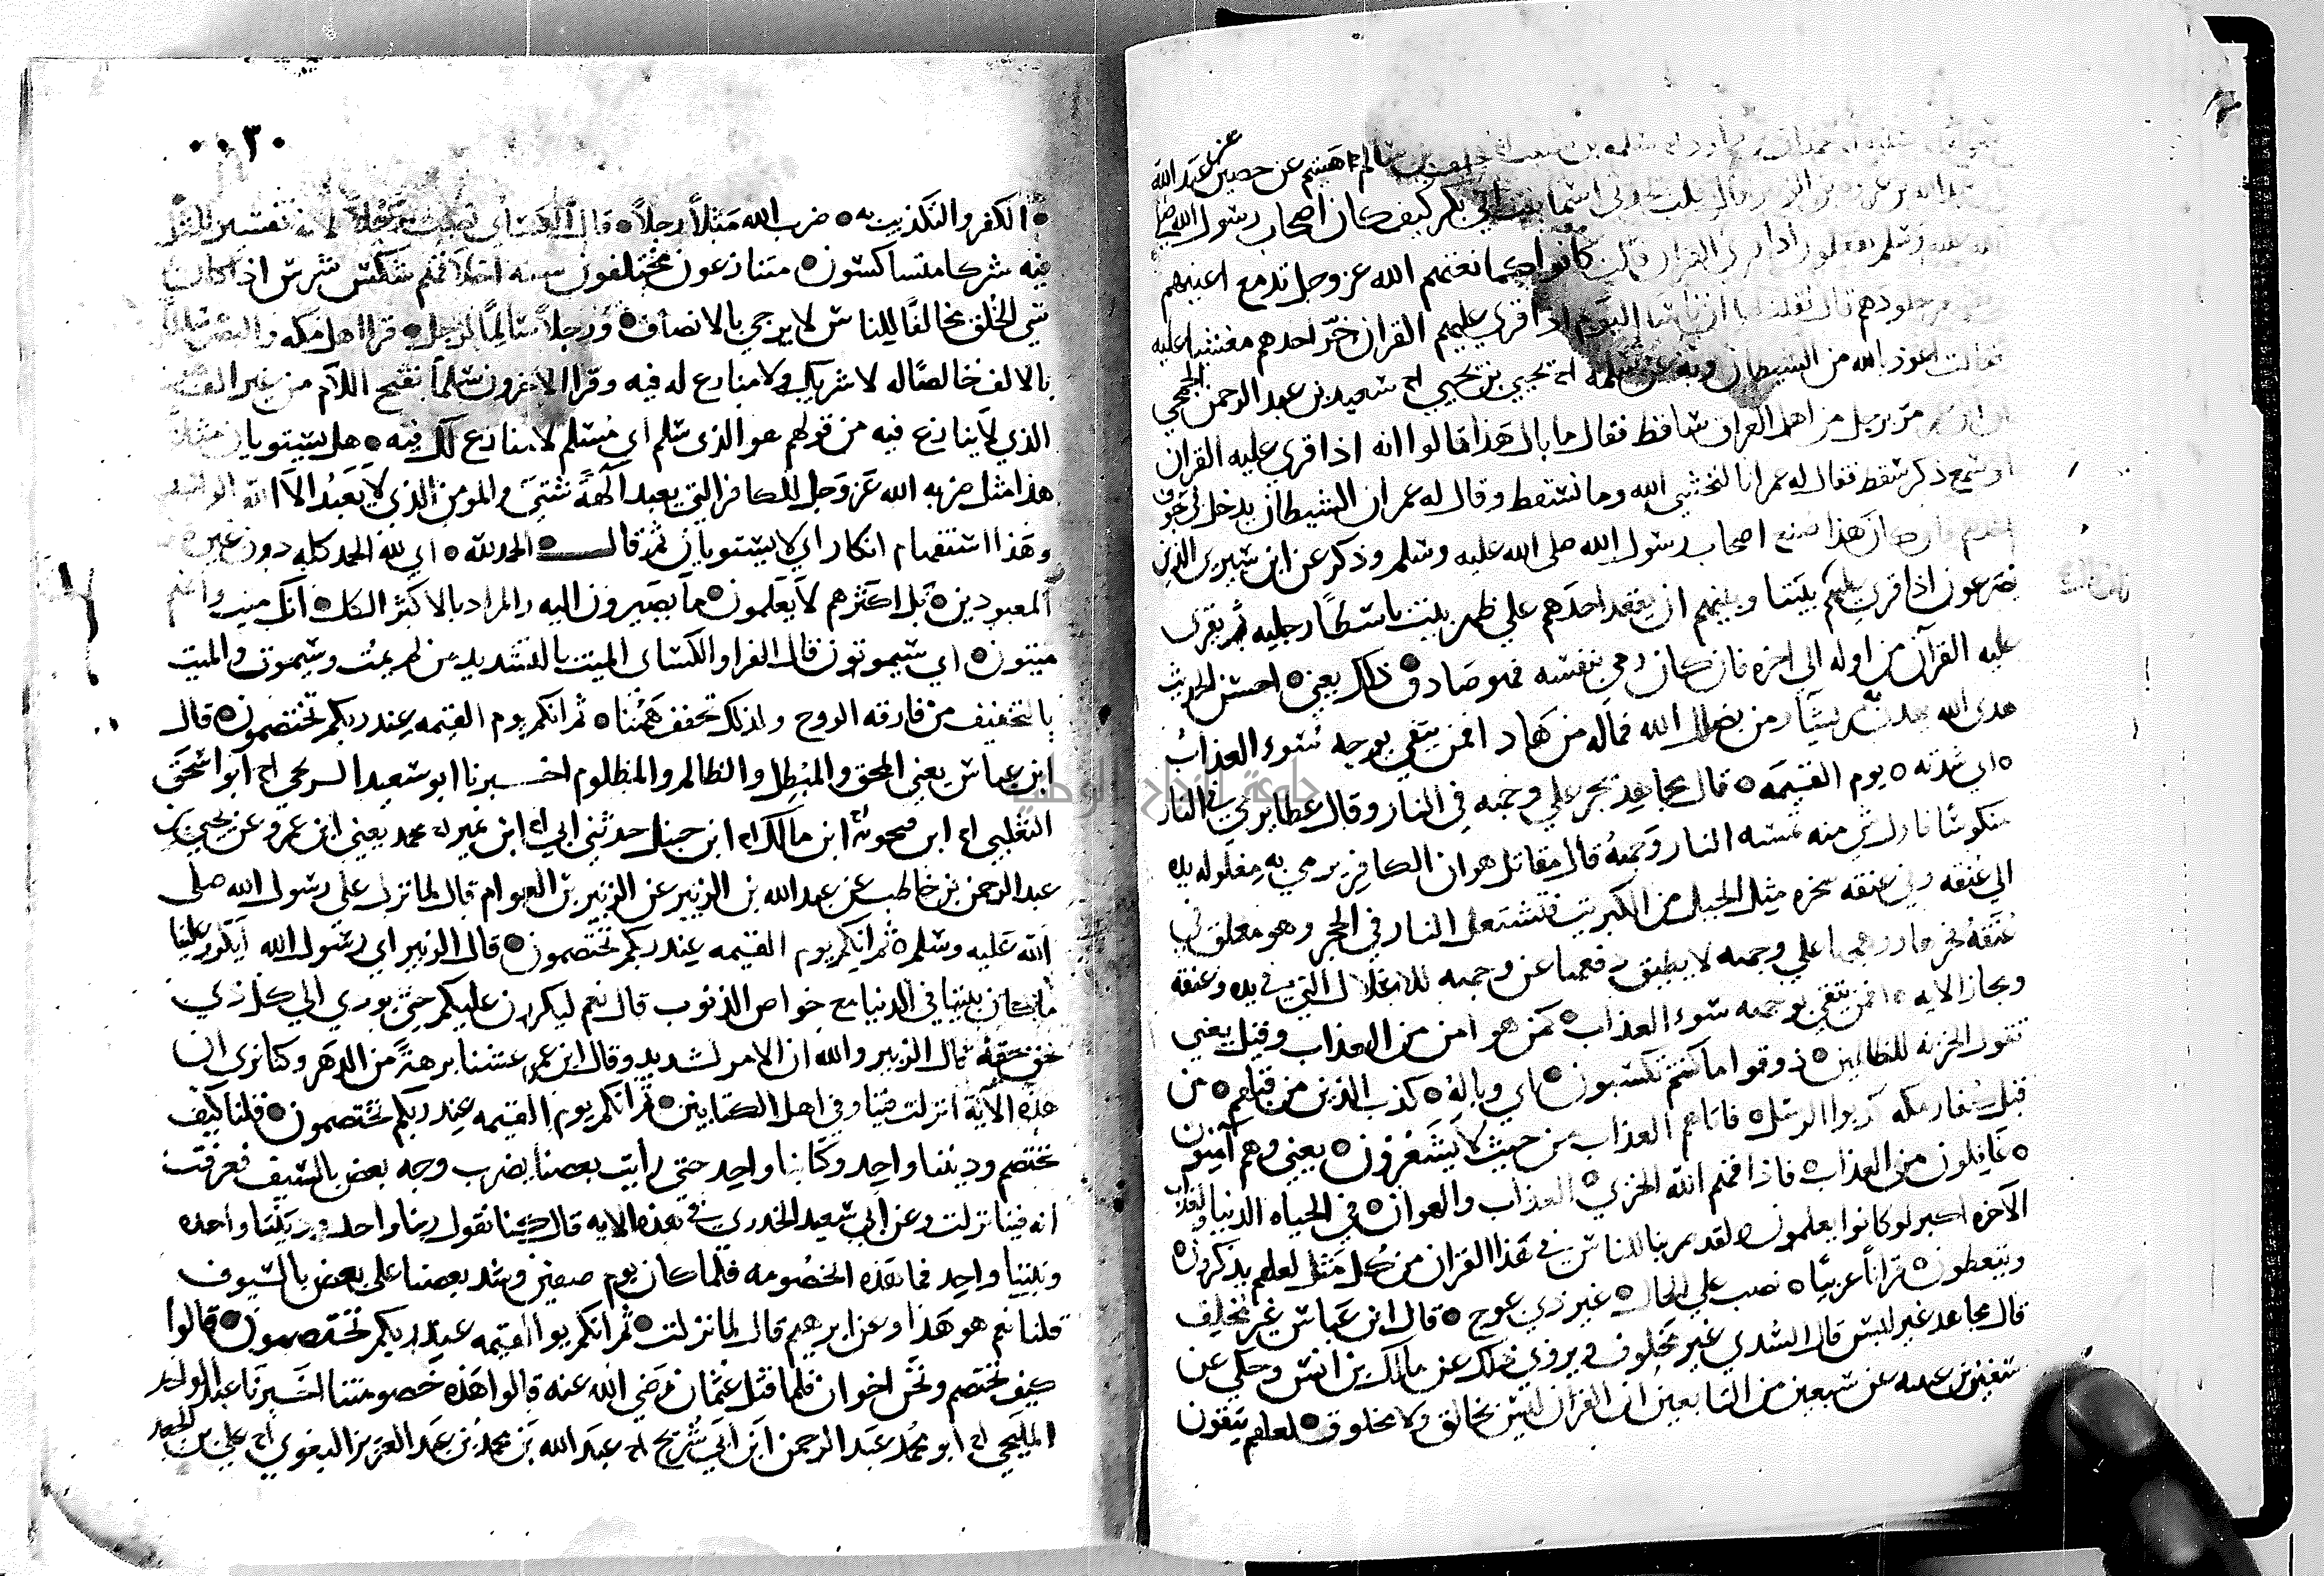 سالم اهيثم عن حصين عن عبد الله
اسما بنت ابي بكر كيف كان اصحاب رسول الله صلى
الله عليه وسلم يفعلون اذا قرى القران قالت كانوا كما نعتهم الله عز وجل تدمع اعينهم
جلودهم قال فقلت لها ان ناسا اليوم اذا قري عليهم القران خر احدهم مغشيا عليه
فقالت اعوذ بالله من الشيطان وبه عن سلمه اۤ يحيى بن يحيى اۤ سعيد بن عبد الرحمن الجمحي
مر برجل من اهل العراق ساقط فقال ما بال هذا قالوا انه اذا قري عليه القران
او سمع ذكر سقط فقال له عمر انا لنخشى الله وما نسقط وقال له عمر ان الشيطان يدخل في جوف
احدهم ما كان هذا صنع اصحاب رسول الله صلى الله عليه وسلم وذكر عن ابن سيرين الذين
يصرعون اذا قري عليهم بيننا وبينهم ان يقعد احدهم علي ظهر بيت باسطا رجليه ثم يقرى
عليه القرآن من اوله الى اخره فان كان رمى بنفسه فهو صادق ذلك يعني احسن الحديث
هدى الله يهدي من يشا ومن يضلل الله فماله من هاد افمن يتقي بوجهه سوء العذاب
اي شدته يوم القيمه قال مجاهد يجر علي وجهه في النار وقال عطا يرمي في النار
منكوسا فاول شي منه تمسه النار وجهه قال مقاتل هو ان الكافر يرمي به مغلوله يده
الي عنقه وفي عنقه صخره مثل الجبل من الكبريت فتشتعل النار في الحجر وهو معلق في
عنقه فحرها ووهجها علي وجهه لا يطيق دفعها عن وجهه للاغلال التي في يده وعنقه
ومجاز الايه افمن يتقي بوجهه سوء العذاب كمن هو امن من العذاب وقيل يعني
تقول الخزنه للظالمين ذوقوا ما كنتم تكسبون اي وباله كذب الذين من قبلهم من
قبل كفار مكه كذبوا الرسل فاتاهم العذاب من حيث لا يشعرون يعني وهم آمنون
غافلون من العذاب فاذاقهم الله الخزي العذاب والهوان في الحياه الدنيا ولعذاب
الآخره اكبر لو كانوا يعلمون ولقد ضربنا للناس في هذا القران من كل مثل لعلهم يتذكرون
ويتعظون قرآنا عربيا نصب علي الحال غير ذي عوج قال ابن عباس غير مختلف
قال مجاهد غير لبس قال السدي غير مخلوق ويروي ذلك عن مالك بن انس وحكي عن
سفين بن عيينه عن سبعين من التابعين ان القران ليس بخالق ولا مخلوق لعلهم يتقون
٠٠٣٠
الكفر والتكذيب به ضرب الله مثلا رجلا قال الكسائي نصب رجلا لانه تفسير للمثل
فيه شركا متشاكسون متنازعون مختلفون سيئه اخلاقهم شكس شرس اذا كان
سي الخلق مخالفا للناس لا يرجي بالانصاف ورجلا سالما لرجل قرا اهل مكه والبصره سالما
بالالف خالصا له لا شريك ولا منازع له فيه وقرا الاخرون سلما بفتح اللام من غير الف
الذي لا ينازع فيه من قولهم هو الذي سلم اي مسلم لا ينازع لك فيه هل يستويان مثلا
هذا مثل ضربه الله عز وجل للكافر التي يعبد آلهة شتى والمومن الذي لا يعبد الا الله الواحد
وهذا استفهام انكار اي لا يستويان ثم قال الحمد لله اي لله الحمد كله دون غيره من
المعبودين بل اكثرهم لا يعلمون ما يصيرون اليه والمراد بالاكثر الكل انك ميت وانهم
ميتون اي سيموتون قال الفرا والكسائي الميت بالتشديد من لم يمت وسيموت والميت
بالتخفيف من فارقه الروح ولذلك تخفف ههنا ثم انكم يوم القيمه عند ربكم تختصمون قال
ابن عباس يعني المحق والمبطل والظالم والمظلوم اخبرنا ابو سعيد السريحي اۤ ابو اسحق
الثعلبي اۤ ابن فنجويه اۤ ابن مالك اۤ ابن حنبل حدثني ابي اۤ ابن نمير اۤ محمد يعني ابن عمرو عن يحيى بن
عبد الرحمن بن حاطب عن عبد الله بن الزبير عن الزبير بن العوام قال لما نزل على رسول الله صلى
الله عليه وسلم ثم انكم يوم القيمه عند ربكم تختصمون قال الزبير اي رسول الله ايكرر علينا
ما كان بيننا في الدنيا مع خواص الذنوب قال نعم ليكررن عليكم حتى يودي الي كل ذي
حق حقه قال الزبير والله ان الامر لشديد وقال ابن عمر عشنا برهة من الدهر وكنا نرى ان
هذه الآية انزلت فينا وفي اهل الكتابين ثم انكم يوم القيمه عند ربكم تختصمون قلنا كيف
نختصم وديننا واحد وكتابنا واحد حتى رايت بعضنا يضرب وجه بعض بالسيف فعرفت
انه فينا نزلت وعن ابي سعيد الخدري في هذه الايه قال كنا نقول ربنا واحد وديننا واحده
ونبينا واحد فما هذه الخصومه فلما كان يوم صفين وشد بعضنا على بعض بالسيوف
قلنا نعم هو هذا وعن ابرهيم قال لما نزلت ثم انكم يوم القيمه عند ربكم تختصمون قالوا
كيف نختصم ونحن اخوان فلما قتل عثمان رضي الله عنه قالوا هذه خصومتنا اخبرنا عبد الواحد
المليحي اۤ ابو محمد عبد الرحمن ابن ابي شريح اۤ عبد الله بن محمد بن عبد العزيز البغوي اۤ علي بن الجعد
جامعة النجاح الوطنية